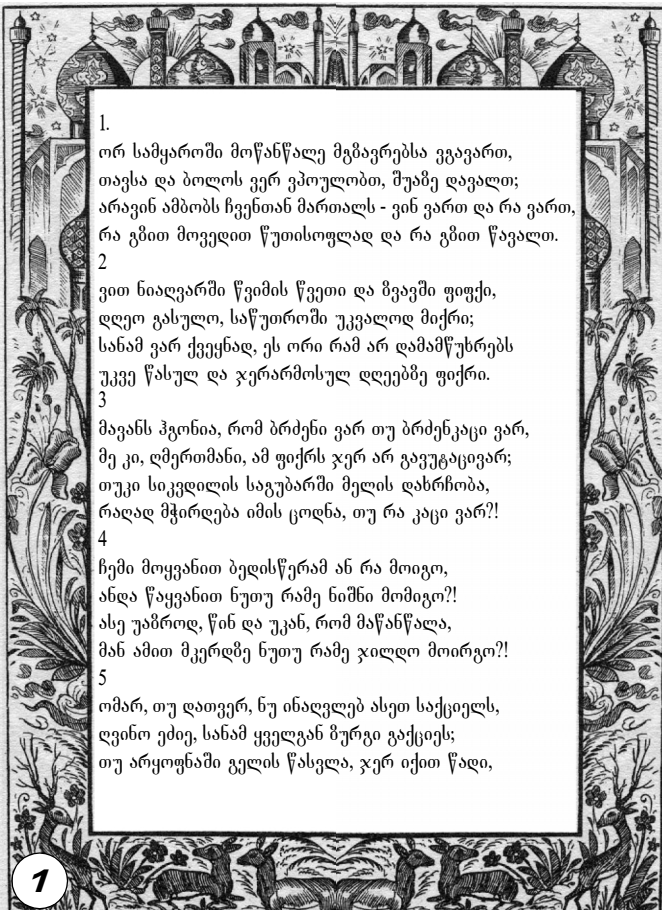 1.
ორ სამყაროში მოწანწალე მგზავრებსა ვგავართ,
თავსა და ბოლოს ვერ ვპოულობთ, შუაზე დავალთ;
არავინ ამბობს ჩვენთან მართალს - ვინ ვართ და რა ვართ,
რა გზით მოვედით წუთისოფლად და რა გზით წავალთ.
2
ვით ნიაღვარში წვიმის წვეთი და ზვავში ფიფქი,
დღეო გასულო, საწუთროში უკვალოდ მიქრი;
სანამ ვარ ქვეყნად, ეს ორი რამ არ დამამწუხრებს
უკვე წასულ და ჯერარმოსულ დღეებზე ფიქრი.
3
მავანს ჰგონია, რომ ბრძენი ვარ თუ ბრძენკაცი ვარ,
მე კი, ღმერთმანი, ამ ფიქრს ჯერ არ გავუტაცივარ;
თუკი სიკვდილის საგუბარში მელის დახრჩობა,
რაღად მჭირდება იმის ცოდნა, თუ რა კაცი ვარ?!
4
ჩემი მოყვანით ბედისწერამ ან რა მოიგო,
ანდა წაყვანით ნუთუ რამე ნიშნი მომიგო?!
ასე უაზროდ, წინ და უკან, რომ მაწანწალა,
მან ამით მკერდზე ნუთუ რამე ჯილდო მოირგო?!
5
ომარ, თუ დათვერ, ნუ ინაღვლებ ასეთ საქციელს,
ღვინო ეძიე, სანამ ყველგან ზურგი გაქციეს;
თუ არყოფნაში გელის წასვლა, ჯერ იქით წადი,
1